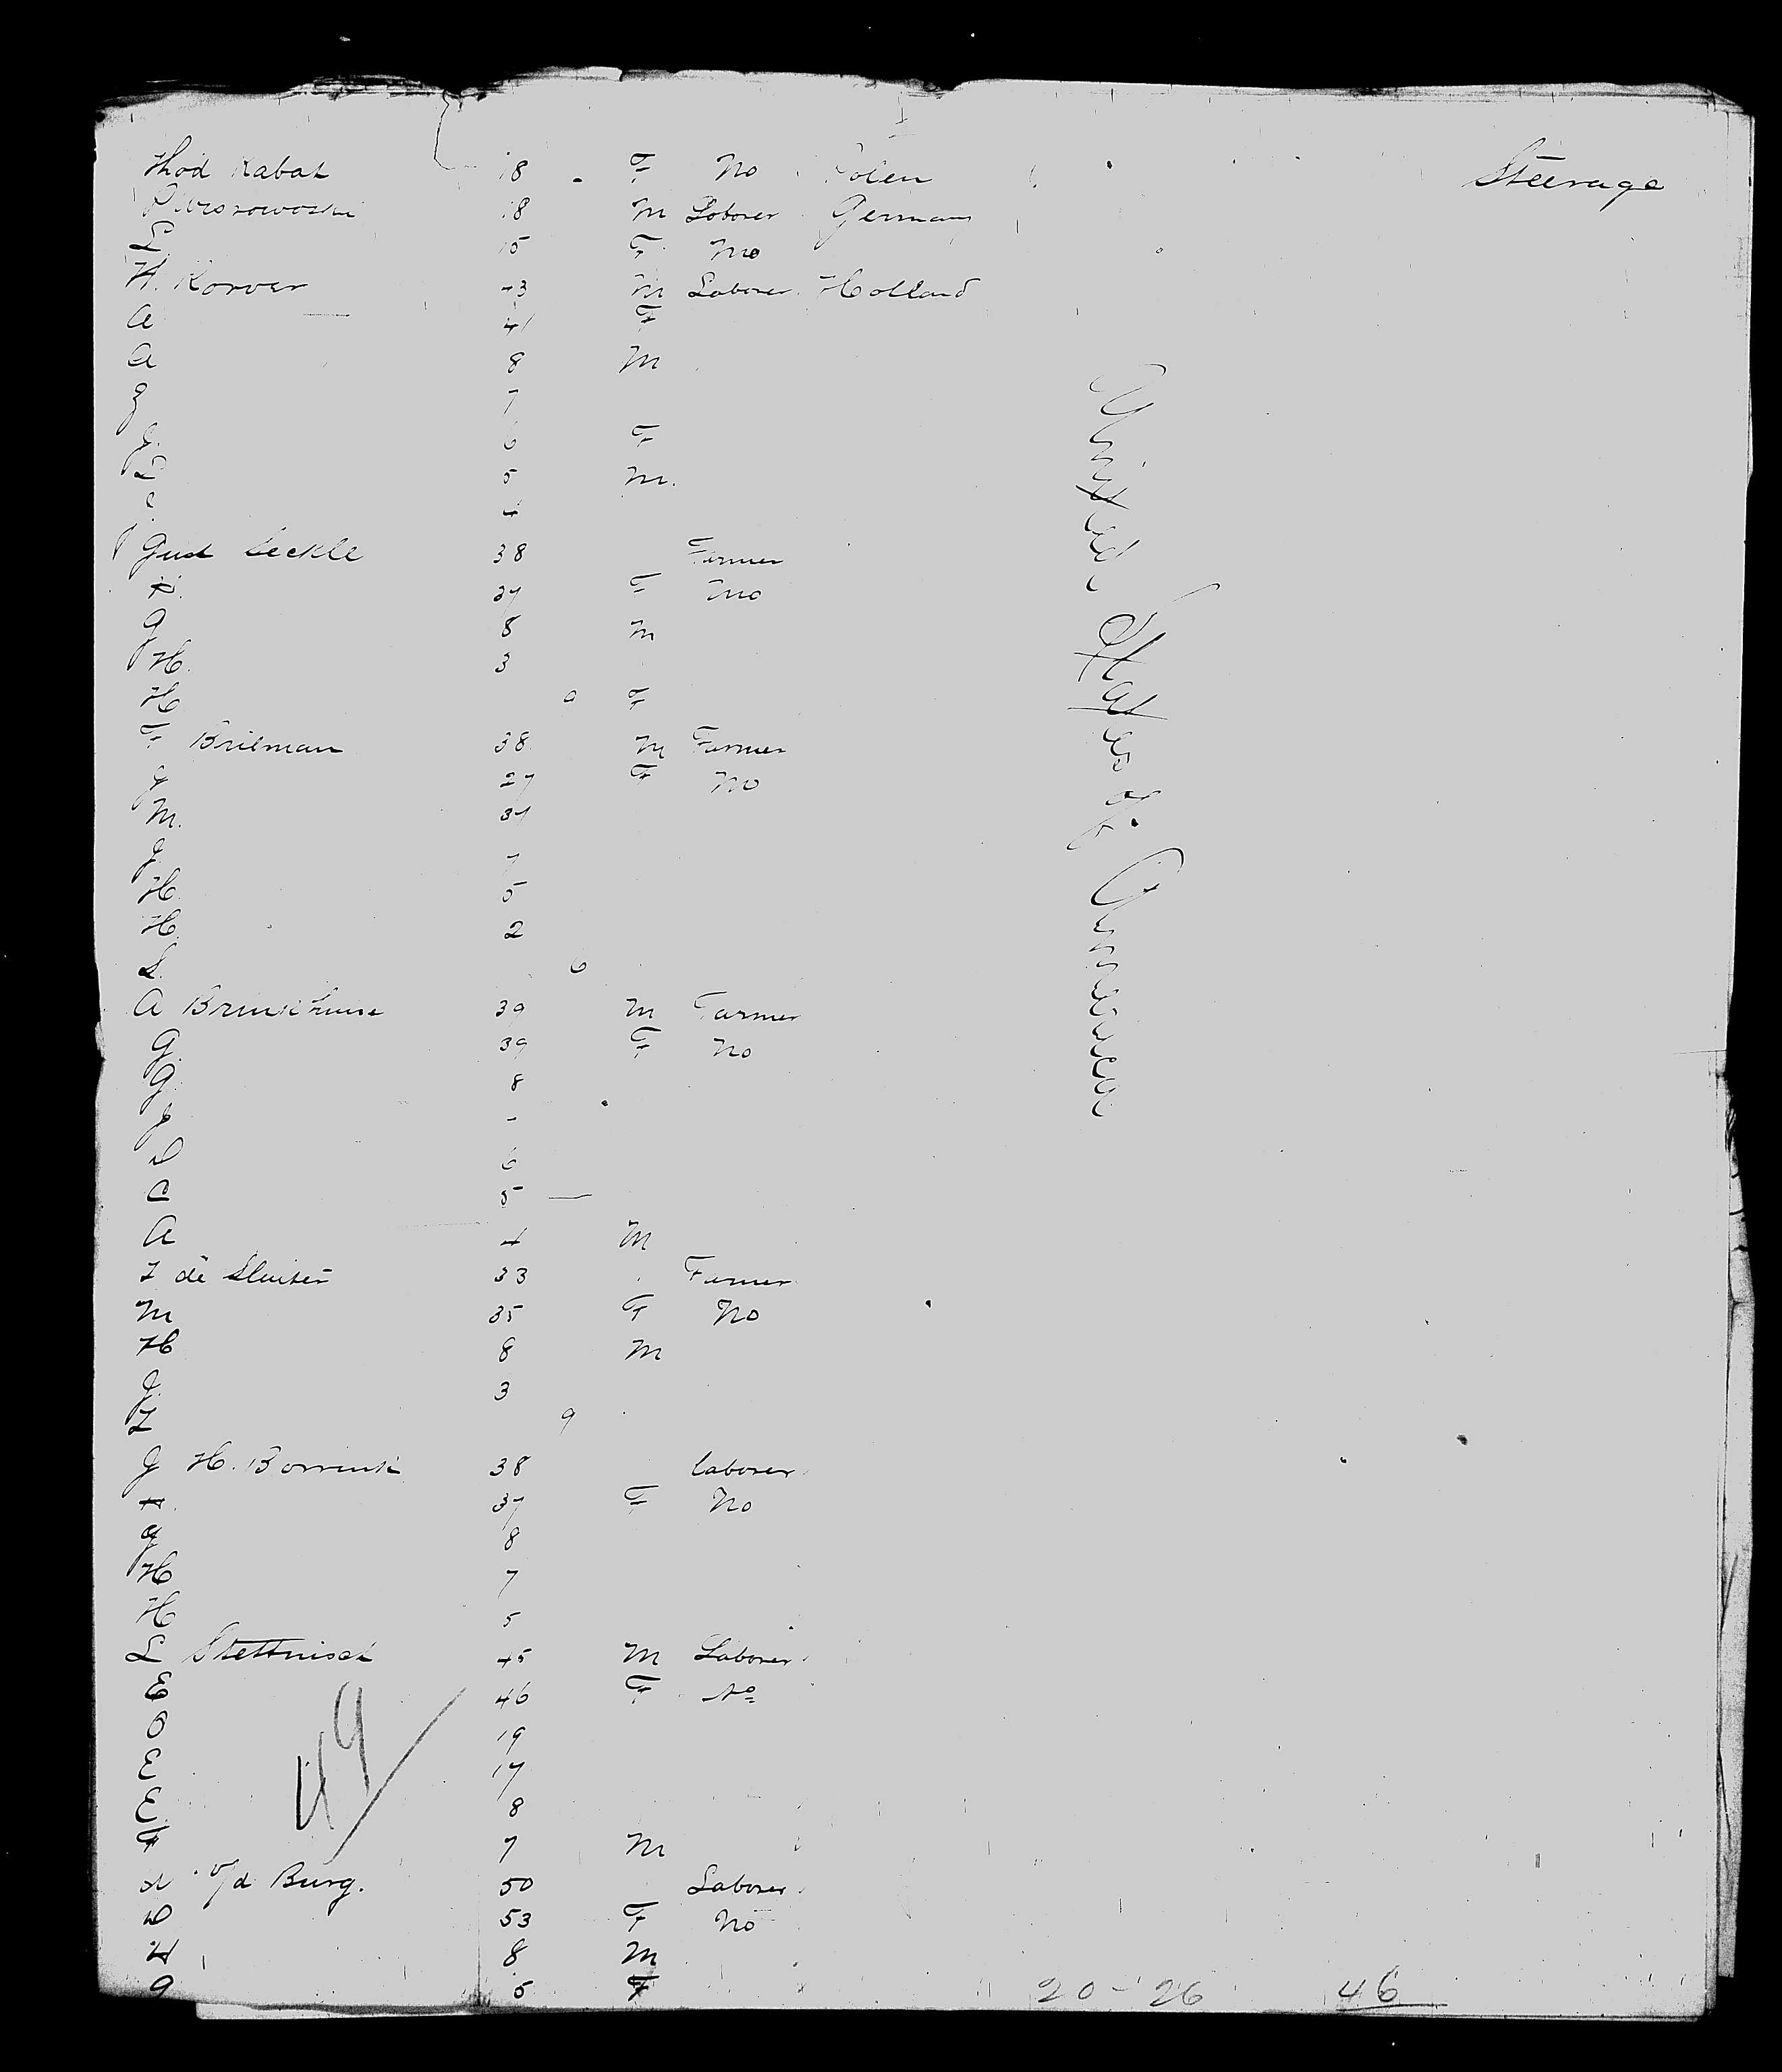 Steerage
Thod Kabat 18 F No Polen
18 M Laborer Germany
15 F No
H. Korver 43 M Laborer Holland
A 41 F
A 8 M
G 7
J. 6 F
D 5 M.
J. 4
Gust Seckle 38 Farmer
37 F No
G 8 M
H. 3
H 9 F
F Brilman 38 M Farmer
J 27 F No
M. 34
J 7
H 5
H. 2
S. 6
A Brinkhuise 39 M Farmer
G. 39 F No
G. 8
J
D 6
C 5 —
A 4 M
I de Sluiter 33 Farmer
M 35 F No
H 8 M
J. 3
I 9
J H. Borrink 38 laborer
37 F No
G 8
H 7
H 5
L Stettnisch 45 M Laborer
E 46 F No
O 19
E 17
E 8
F 7 M
A v/d Burg. 50 Laborer
D 53 F No
H 8 M
G 5 F
United States of America
49/
20-26 46